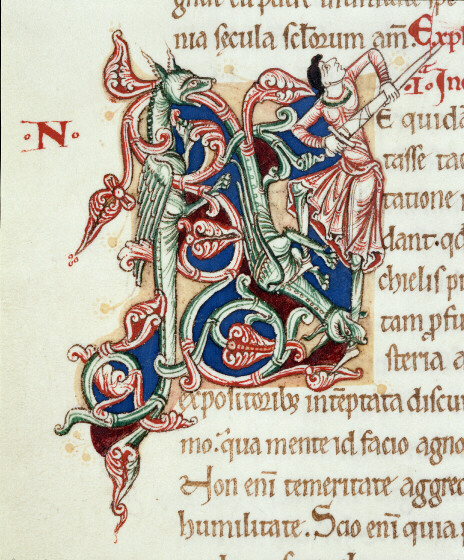 nia secula scl̅orum am̅. Expl
·I· Inc
·N·
E quida
tasse tac
tatione
dant. qd
chielis p
tam p̱fu
steria a
expositoribꝫ int̅eptata discu
mo. qua mente id facio agno
Non eni̅ temeritate aggred
humilitate. Scio eni̅ quia